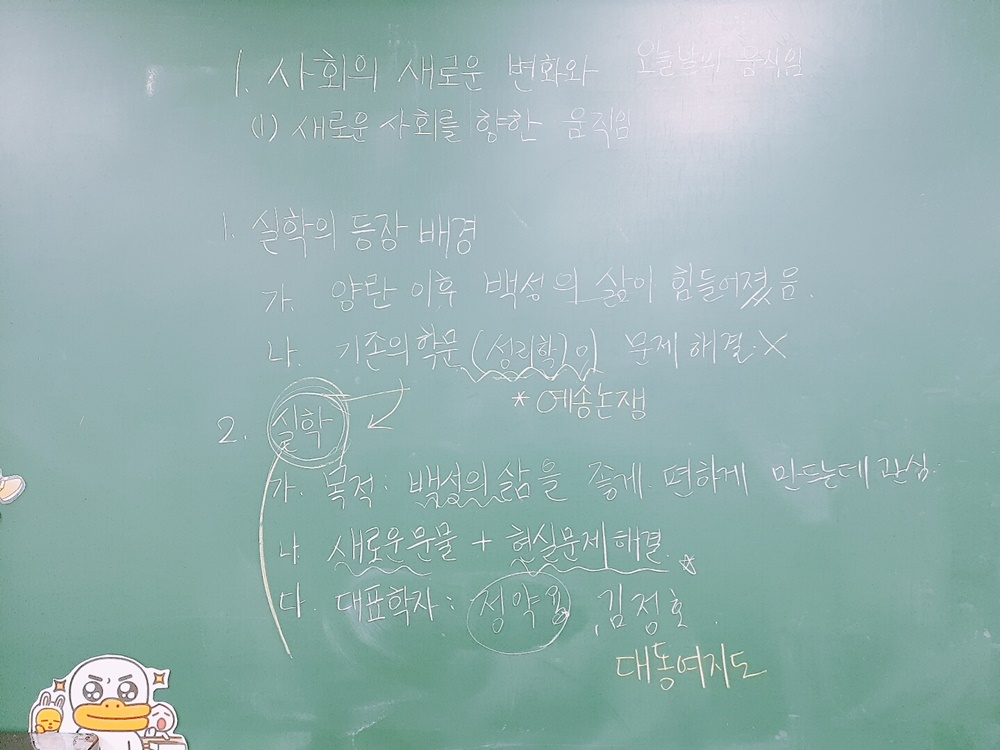 1. 사회의 새로운 변화와 오늘날의 움직임
(1) 새로운 사회를 향한 움직임
1. 실학의 등장 배경
가. 양란 이후 백성의 삶이 힘들어졌음.
나. 기존의 학문(성리학)이 문제해결X
* 예송논쟁
2. 실학
가. 목적: 백성의 삶을 좋게. 편하게 만드는데 관심.
나. 새로운문물 + 현실문제해결.
다. 대표학자: 정약용, 김정호.
대동여지도